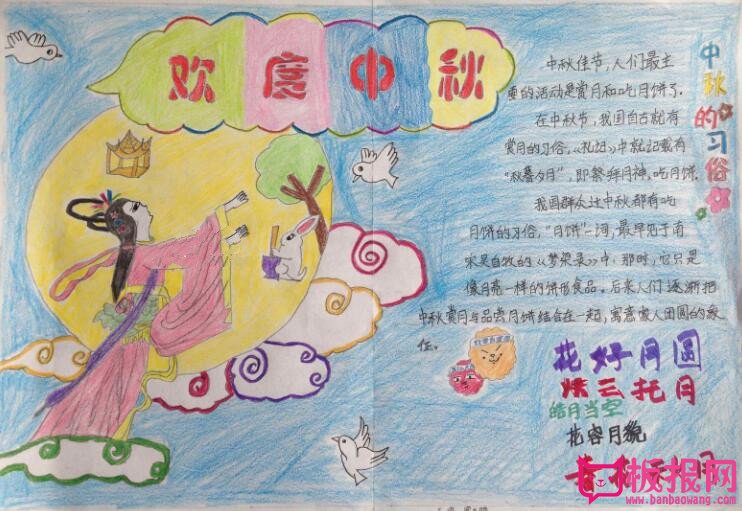 欢度中秋
中秋的习俗
中秋佳节,人们最主
要的活动是赏月和吃月饼了.
在中秋节,我国自古就有
赏月的习俗,《礼记》中就记载有
"秋暮夕月",即祭拜月神,吃月饼.
我国群众过中秋都有吃
月饼的习俗,"月饼"一词,最早见于南
宋吴自牧的《梦梁录》中,那时,它只是
像月亮一样的饼形食品。后来人们逐渐把
中秋赏月与品尝月饼结合在一起,寓意家人团圆的象
征。
花好月圆
烘云托月
皓月当空
花容月貌
板报网
www.banbaowang.com